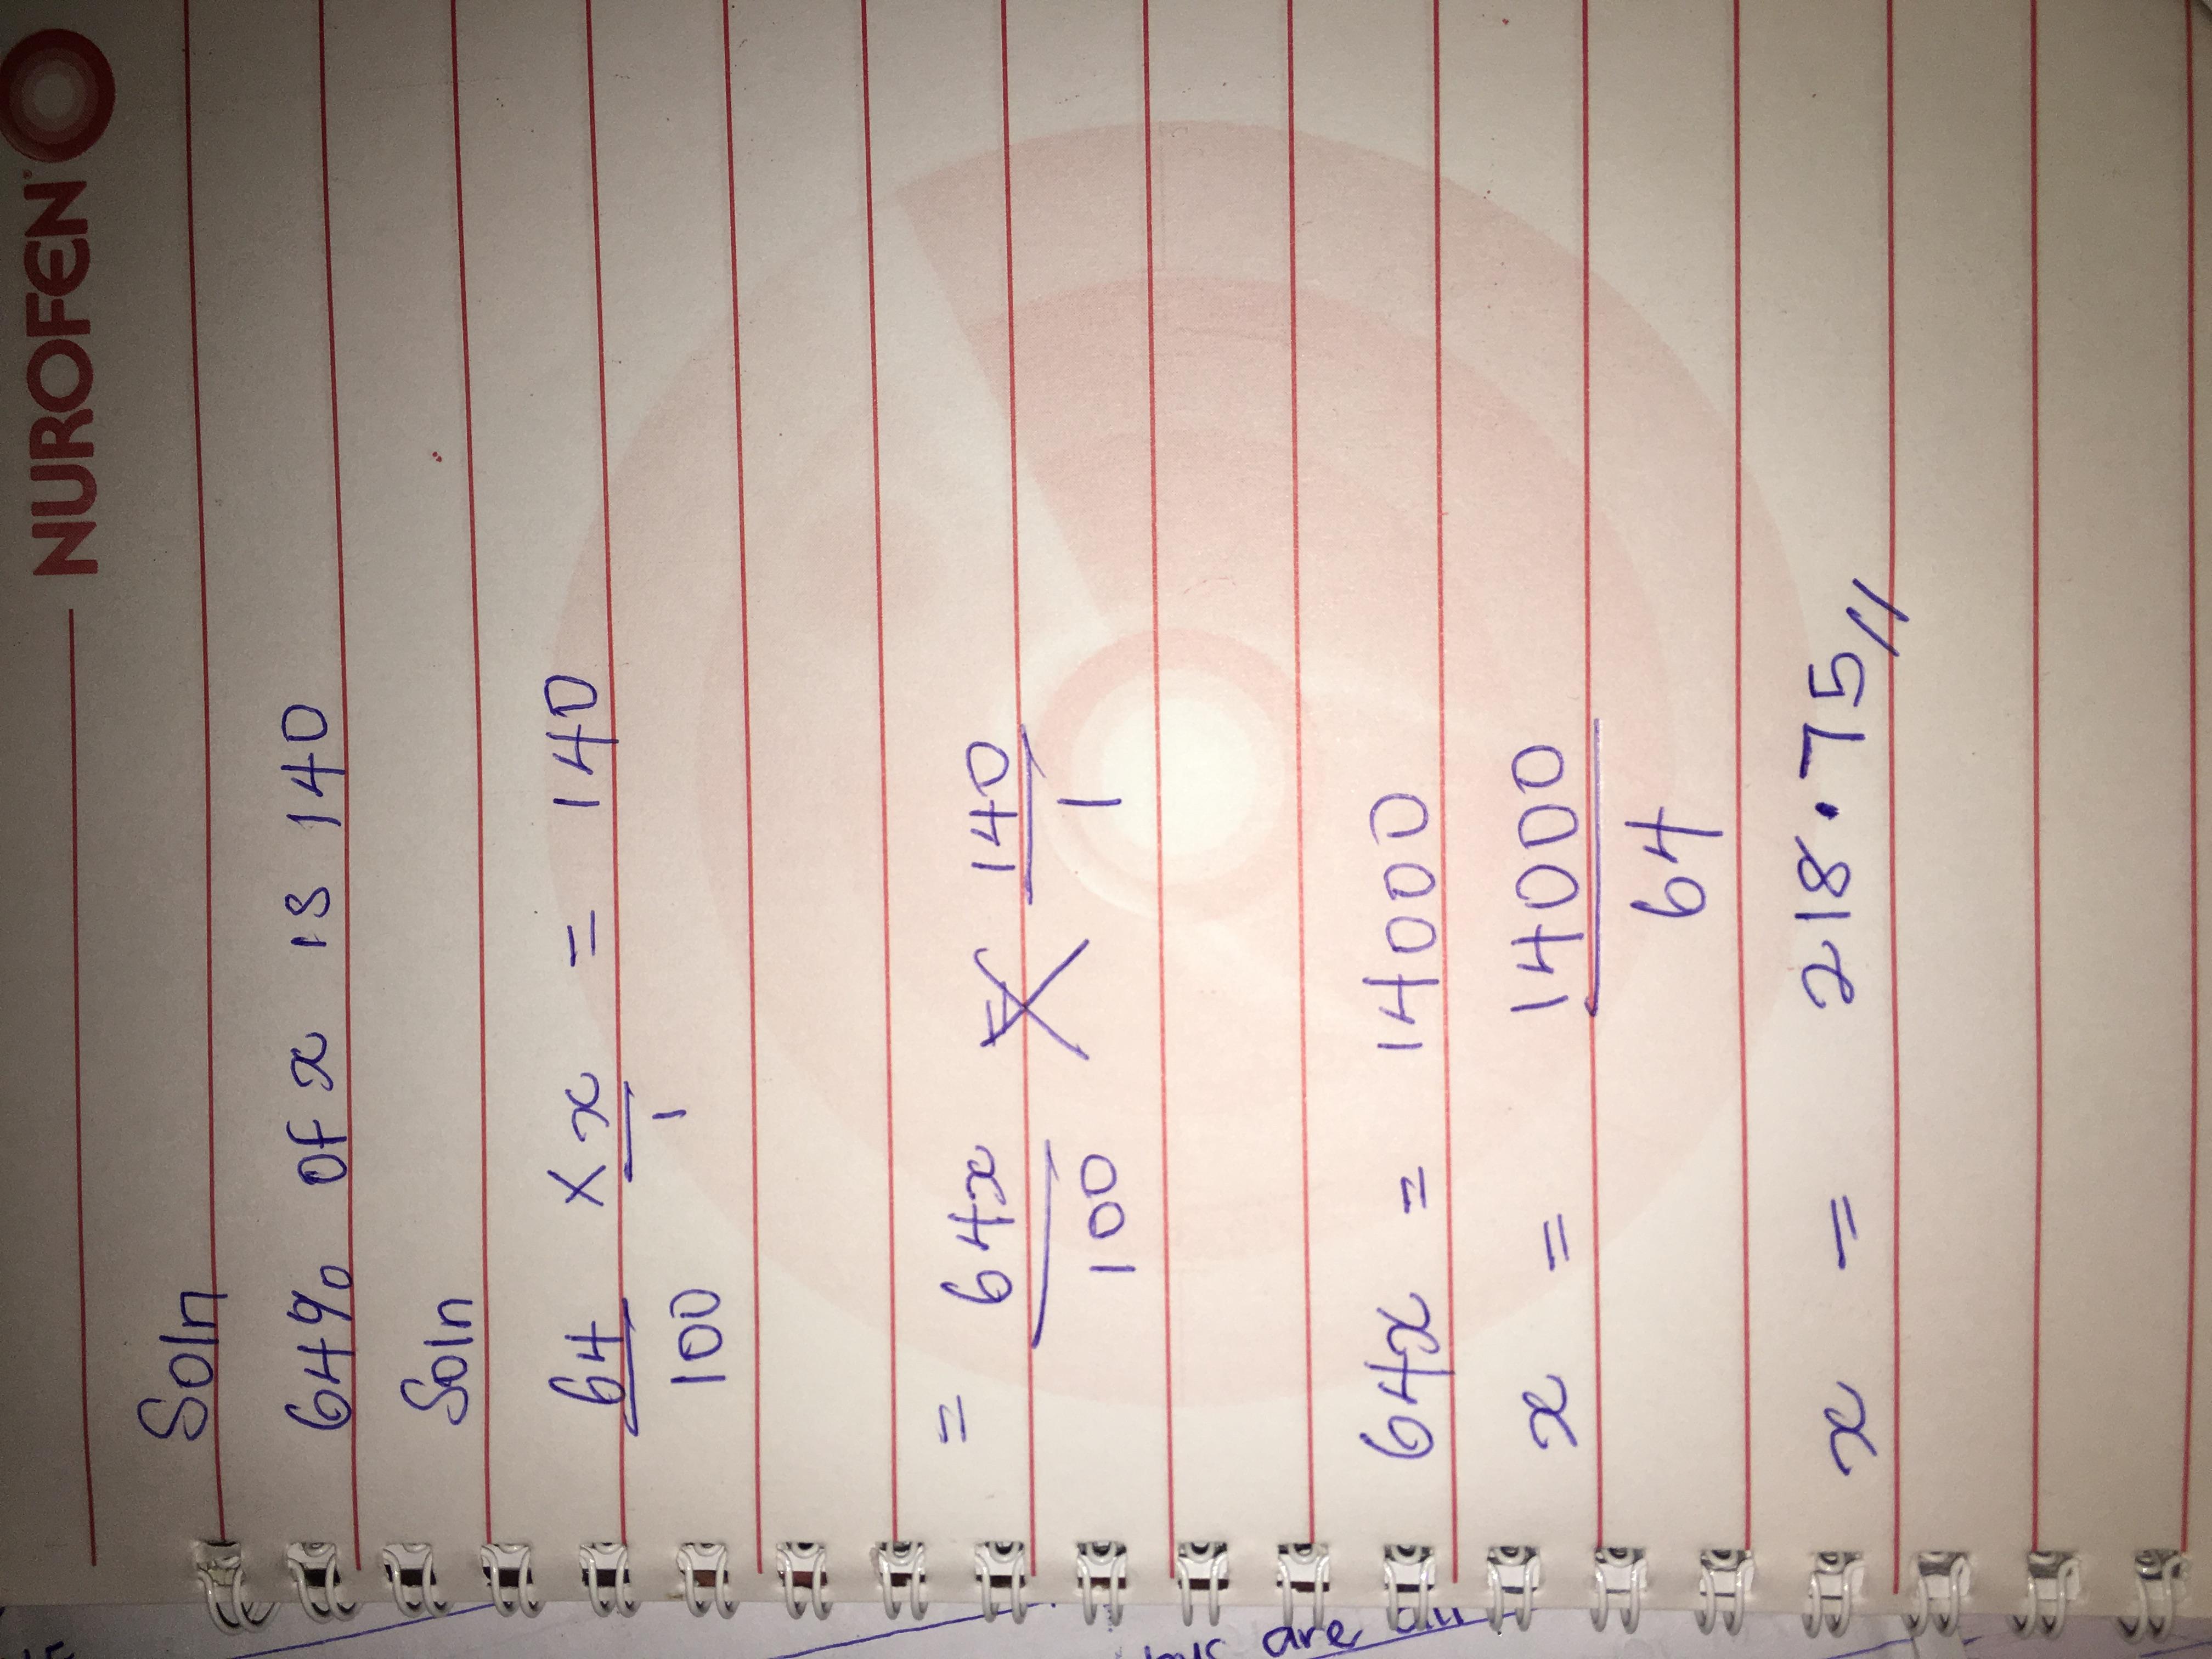 NUROFEN
Soln
64% of x is 140
Soln
64/100 × x/1 = 140
= 64x/100 = 140/1
64x = 14000
x = 14000/64
x = 218.75//
are